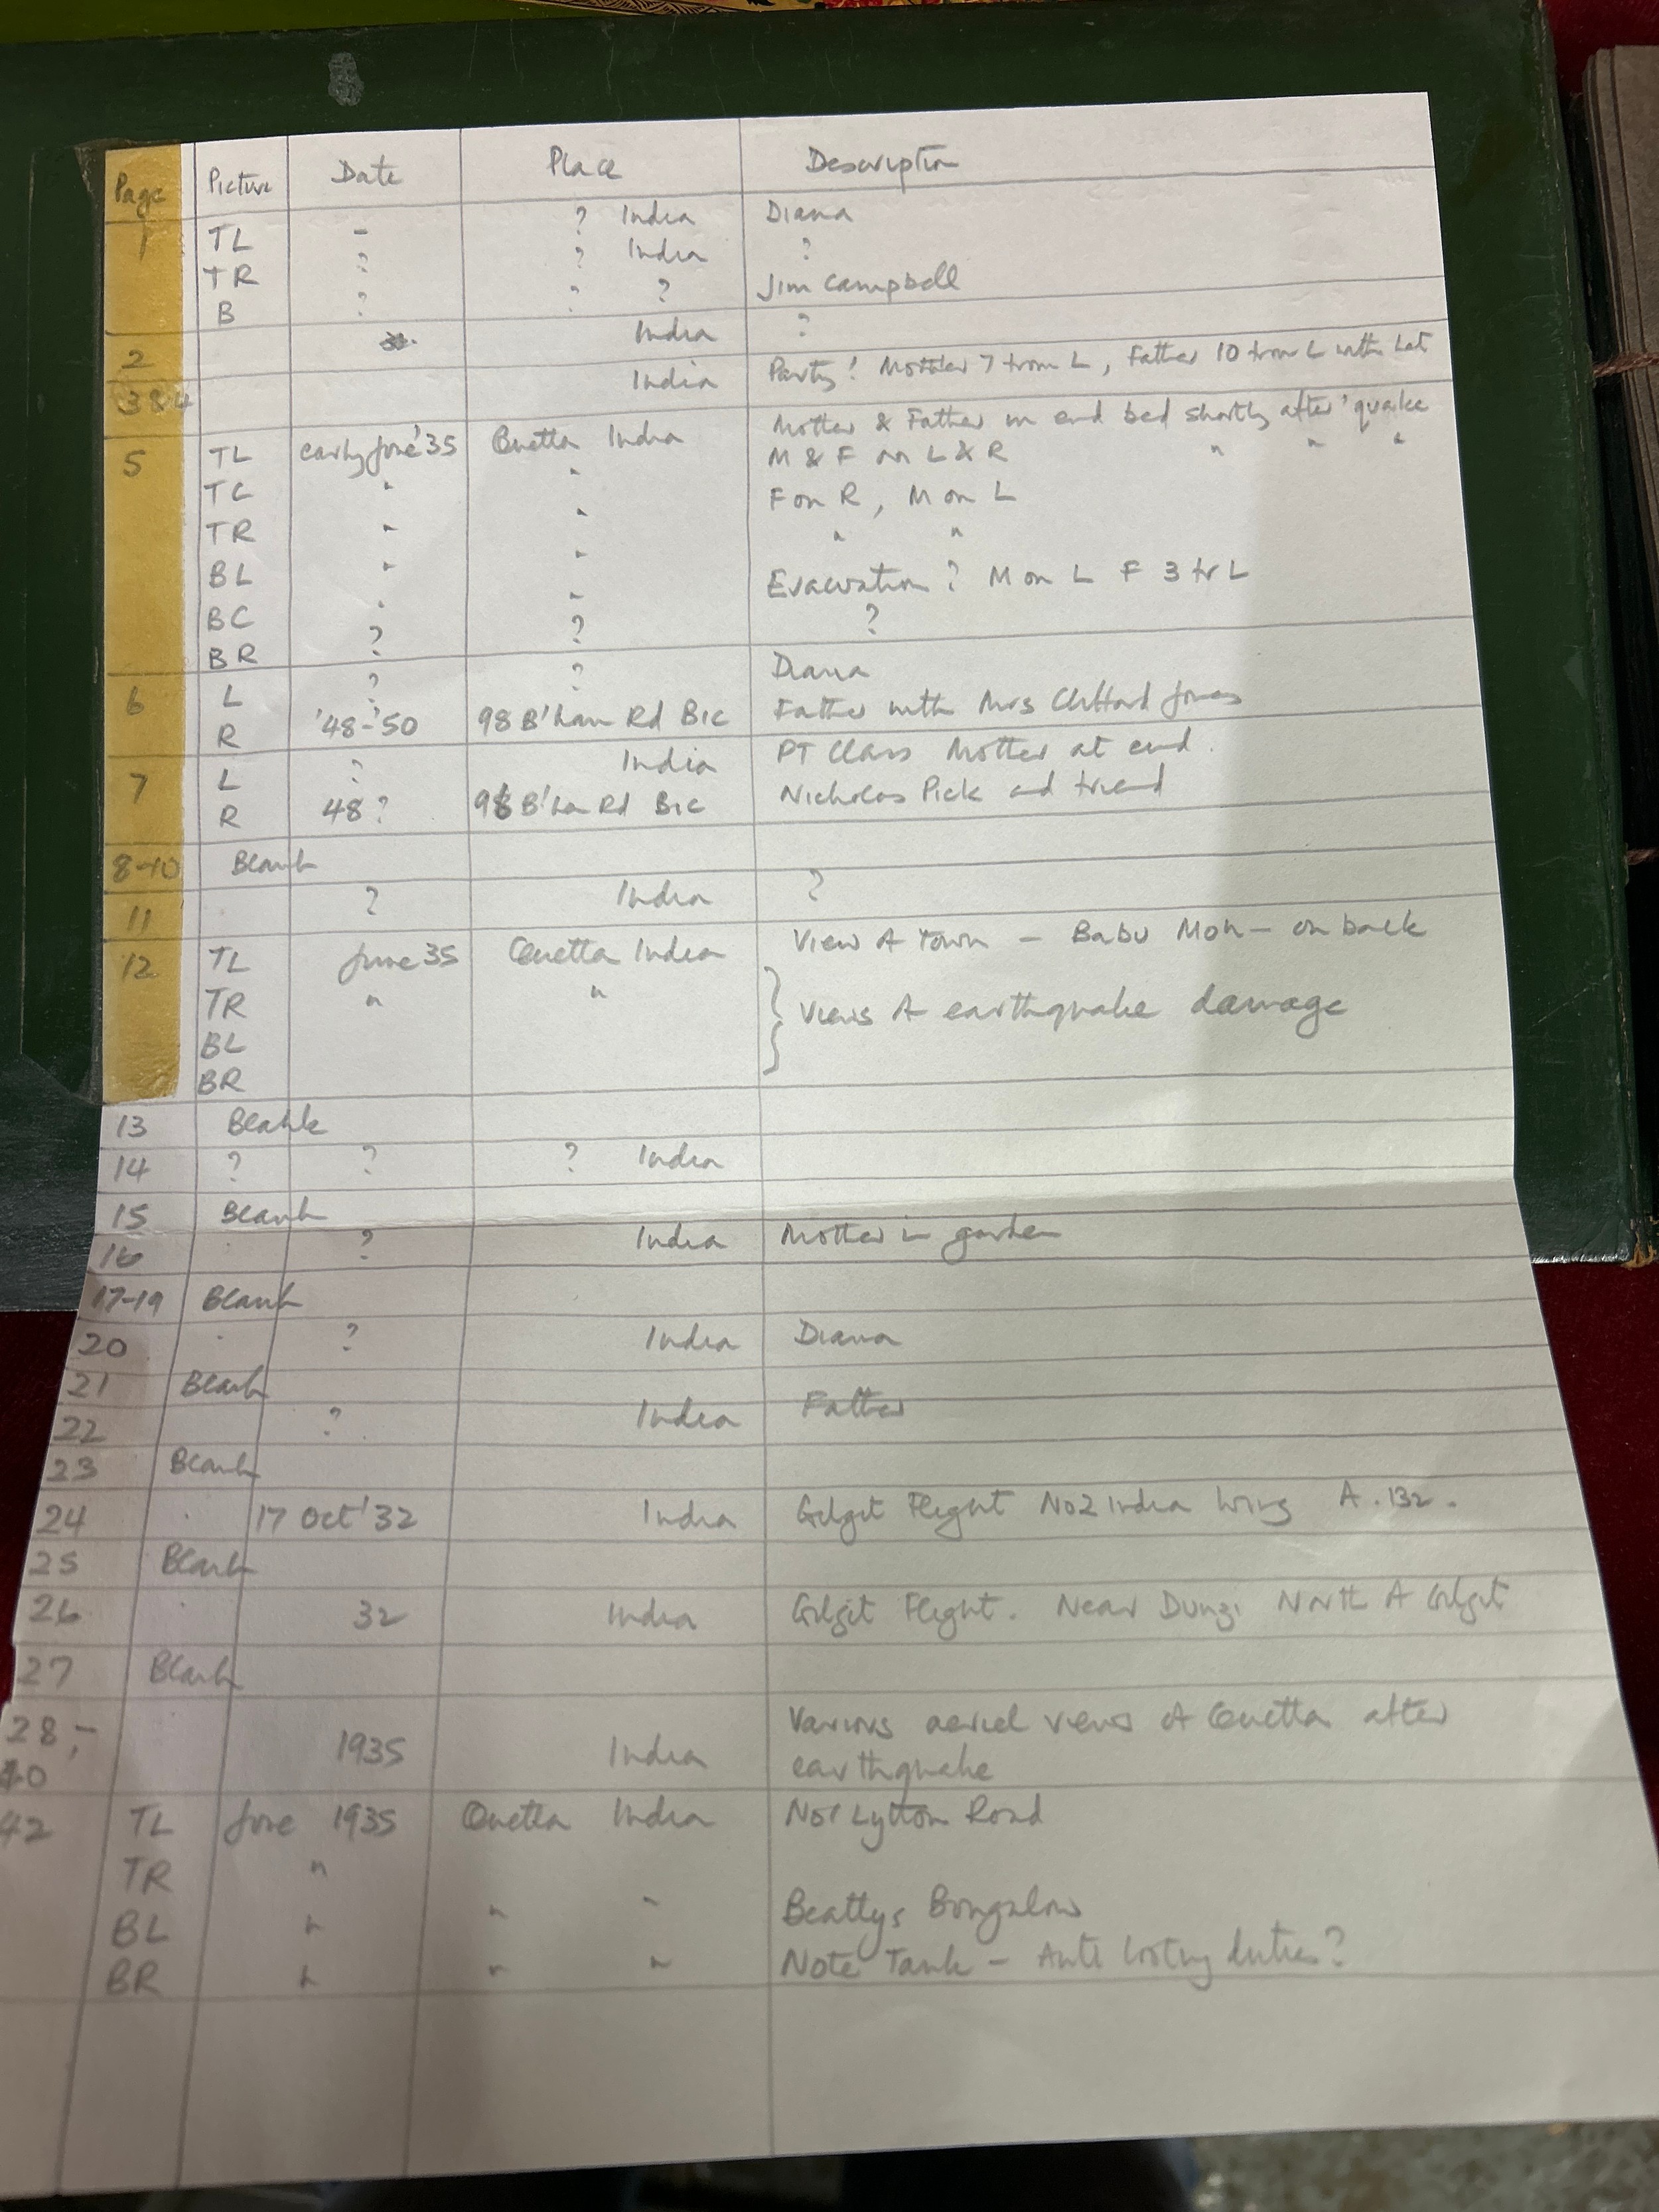 Page Picture Date Place Description
1 TL - ? India Diana
TR ? ? India ?
B ? " ? Jim Campbell
2 India ?
3&4 India Party! Mother 7 from L, Father 10 from L with hat
5 TL early June '35 Quetta India Mother & Father in end bed shortly after 'quake
TC " " M & F on L & R " " "
TR " " F on R, M on L
BL " " " "
BC " " Evacuation? M on L F 3 fr L
BR ? ? ?
6 L ? ? Diana
R '48-'50 98 B'ham Rd Bic Father with Mrs Clifford Jones
7 L ? India PT Class Mother at end.
R 48? 98 B'ham Rd Bic Nicholas Pick and friend
8-10 Blank
11 ? India ?
12 TL June 35 Quetta India View of Town - Babu Moh - on back
TR " " } views of earthquake damage
BL
BR
13 Blank
14 ? ? ? India
15 Blank
16 ? India Mother in garden
17-19 Blank
20 ? India Diana
21 Blank
22 ? India Father
23 Blank
24 17 Oct '32 India Gilgit Flight No2 India Wing A.132.
25 Blank
26 32 India Gilgit Flight. Near Dungi North of Gilgit
27 Blank
28,-
40 1935 India Various aerial views of Quetta after
earthquake
42 TL June 1935 Quetta India No1 Lytton Road
TR "
BL " " " Beattys Bongalow
BR " " " Note Tank - Anti looting duties?